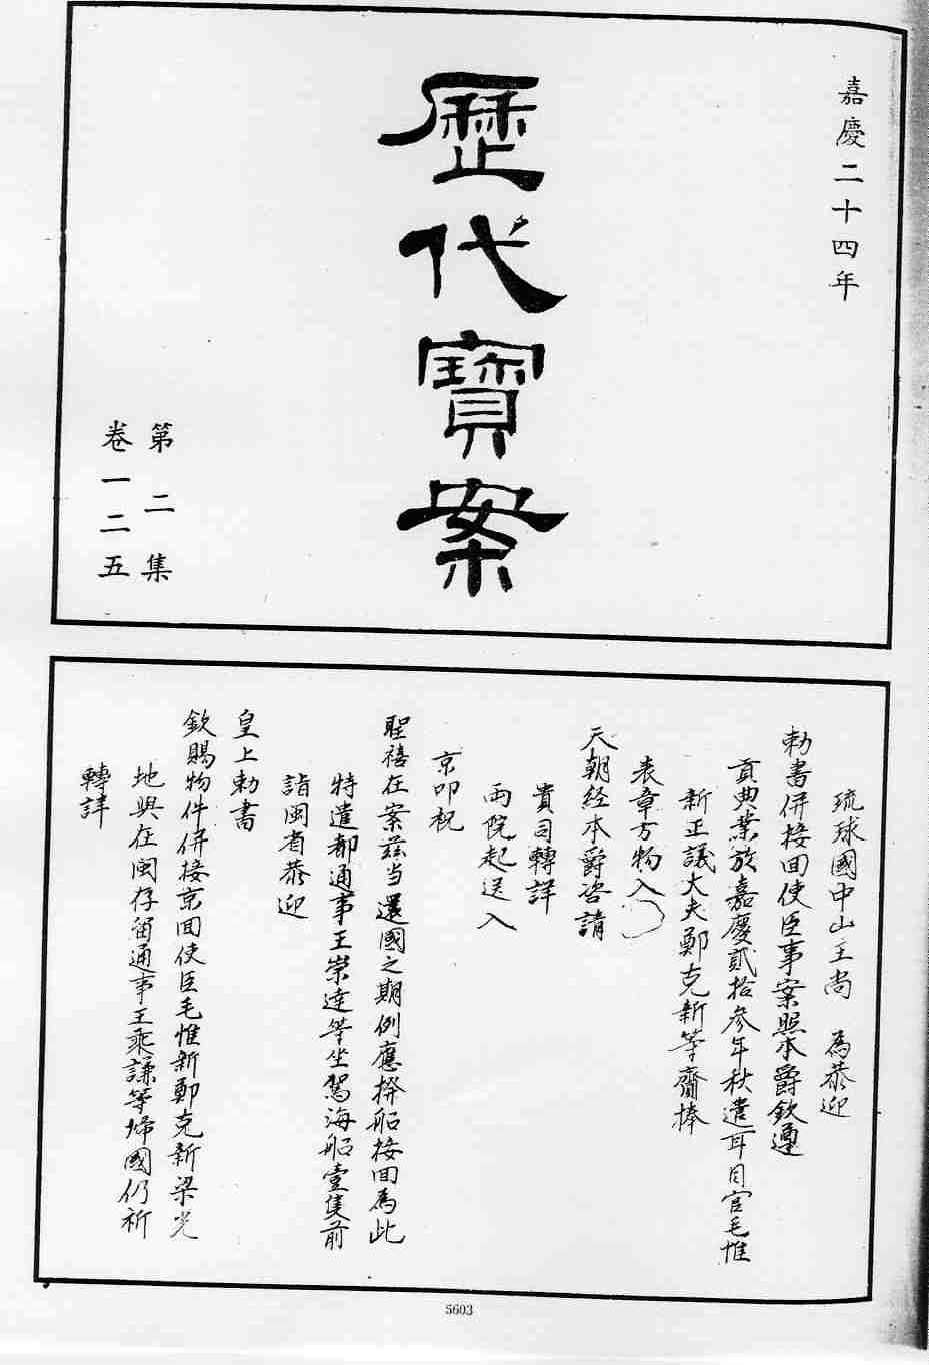 嘉慶二十四年
歷代寶案
第二集
卷一二五
琉球國中山王尚 為恭迎
勅書併接回使臣事案照本爵欽遵
貢典業於嘉慶貳拾參年秋遣耳目官毛惟
新正議大夫鄭克新等齎捧
表章方物入
天朝経本爵咨請
貴司轉詳
両院起送入
京叩祝
聖禧在案茲当還國之期例應撥船接回為此
特遣都通事王崇達等坐駕海船壹隻前
詣閩省恭迎
皇上勅書
欽賜物件併接京回使臣毛惟新鄭克新梁光
地與在閩存留通事王秉謙等帰國仍祈
轉詳
5603